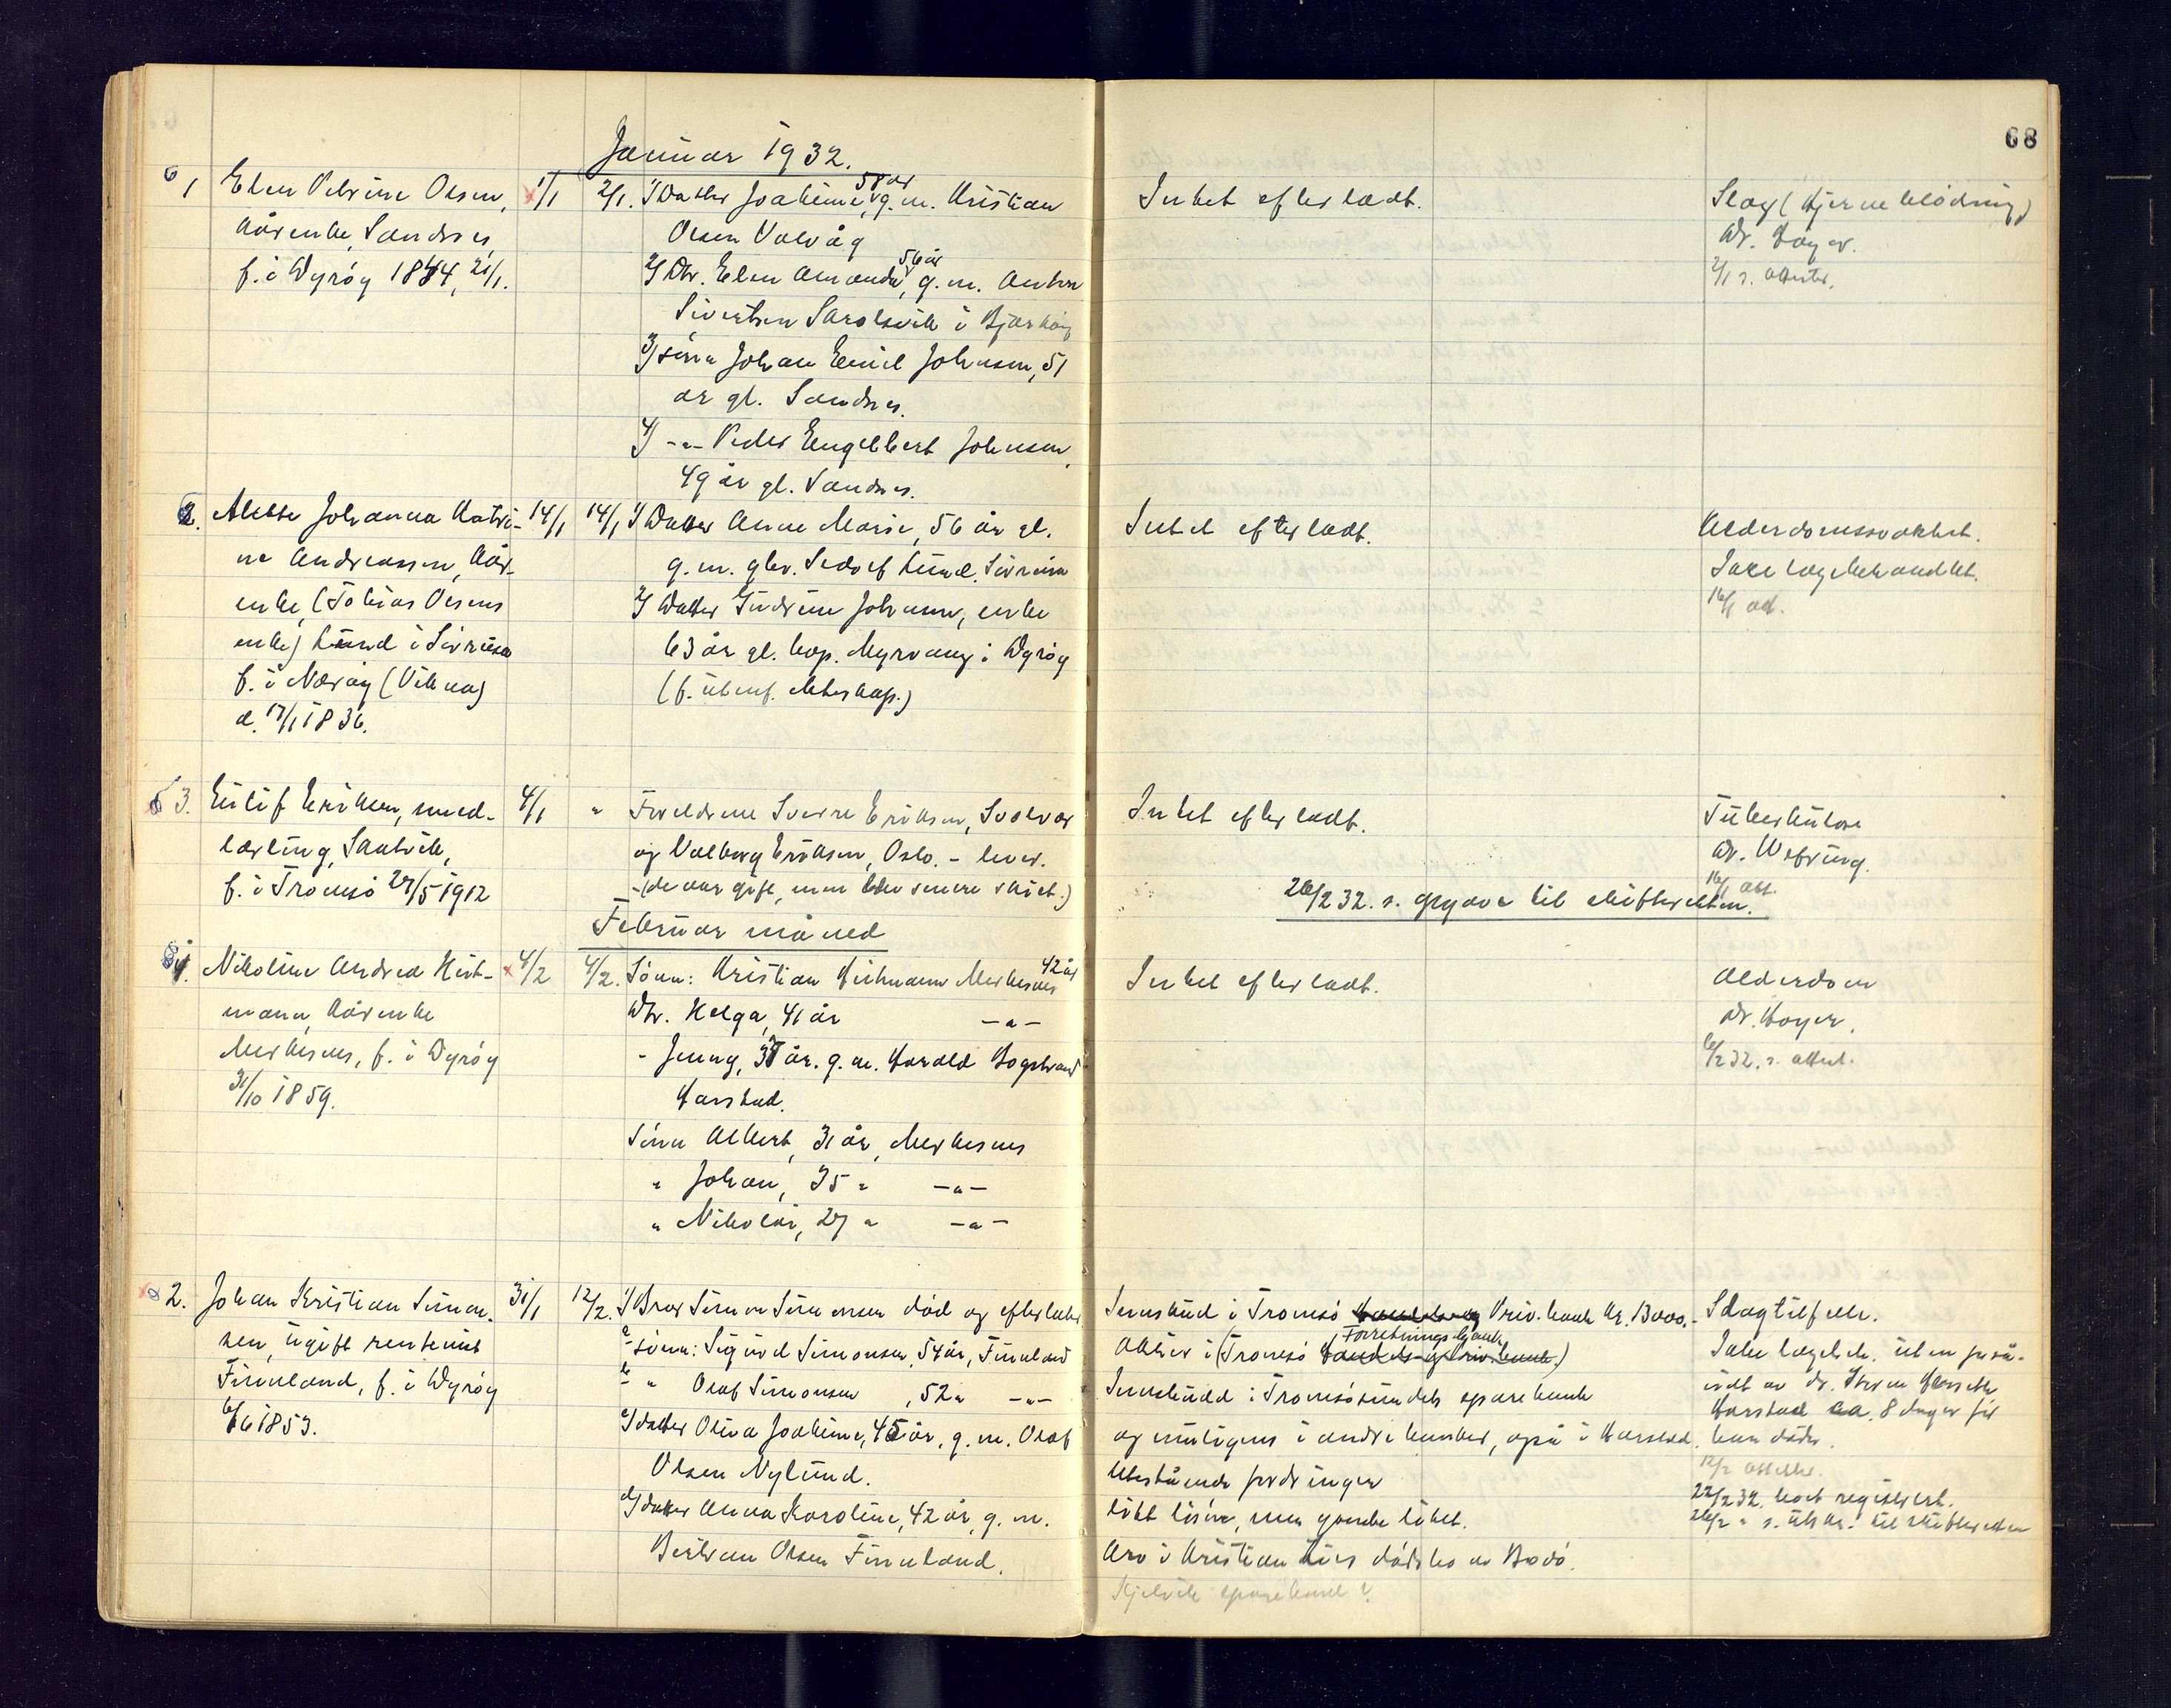 68
Januar 1932.
1 Elen Petrine Olsen, 1/1 2/1. 1) Datter Joakime, 58 år g. m. Kristian Intet efterladt. Slag (Hjerneblødning)
kårenke, Sandnes, Olsen Valvåg Dr. Høyer.
f. i Dyrøy 1844, 21/1. 2) Dtr. Elen Amanda, 56 år g. m. Anton 2/1 s. attest.
Sivertsen Skrolsvik i Bjarkøy
3) sønn Johan Emil Johnsen, 51
år gl. Sandnes.
4) -"- Peder Engelbert Johnsen,
49 år gl. Sandnes.
2. Alette Johanna Katri- 14/1 14/1 1) Datter Anne Marie, 56 år gl. Intet efterladt. Alderdomssvakhet.
ne Andreassen, kår- g. m. gbr. Sedolf Lund, Sørreisa Ikke lægebehandlet.
enke, (Tobias Olsens 2) Datter Gudrine Johnsen, enke 16/1 att.
enke) Lund i Sørreisa 63 år gl. bop. Myrvang i Dyrøy
f. i Nærøy (Vikna) (f. utenf. ekteskap.)
d. 17/1 1836.
3. Eilif Eriksen, smed- 4/1 " Foreldrene Sverre Eriksen, Svolvær Intet efterladt. Tuberkulose
lærling, Skatvik, og Valborg Eriksen, Oslo. - lever. Dr. Wefring.
f. i Tromsø 27/5 1912 - (de var gift, men blev senere skilt.) 16/1 att.
26/2 32. s. opgave til skifteretten.
Februar måned
1. Nikoline Andrea Hart- 4/2 4/2. Sønn: Kristian Hartmann Merkesnes 42 år Intet efterladt. Alderdom
mann, kårenke Dtr. Helga, 41 år -"- Dr. Høyer.
Merkesnes, f. i Dyrøy - Jenny, 37 år. g. m. Harald Bogstrand 6/2 32. s. attest.
31/10 1859. Harstad.
Sønn Albert, 31 år, Merkesnes
" Johan, 35 " -"-
" Nikolai, 27 " -"-
2. Johan Kristian Simon- 31/1 12/2. 1) Bror Simon Simonsen død og efterlater Innskud i Tromsø Handels og Priv. bank kr. 13000.- Slagtilfelle.
sen, ugift rentenist a sønn: Sigurd Simonsen, 54 år, Finnland Aktier i (Tromsø Handels- og Privatbank.) Forretningsbank Ikke lægebeh. uten
Finnland, f. i Dyrøy b " Olaf Simonsen, 52 " -"- Innskudd i Tromsøsundets sparebank av dr.
6/6 1853. c) datter Oliva Joakime, 45 år, g. m. Olaf og muligens i andre banker, også i Harstad. Harstad ca. 8 dager før
Olsen Nylund. Utestående fordringer han døde.
d) datter Anna Karoline, 42 år, g. m. litt løsøre, men ganske lite. 12/2 attest.
Bertran Olsen Finnland. Arv i Kristian dødsbo av Bodø. 22/2 32. boet registrert.
sparebank? 26/2 " s. utskr. til skifteretten